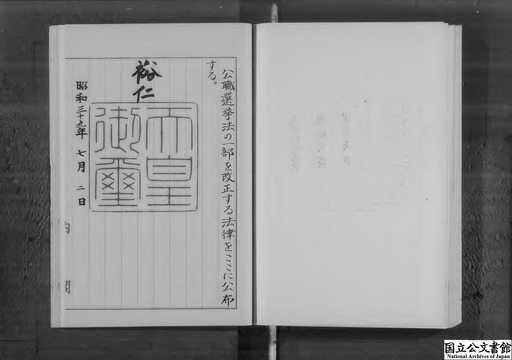 公職選挙法の一部を改正する法律をここに公布
する。
裕仁
天皇
御璽
昭和三十九年 七月 二日
国立公文書館
National Archives of Japan